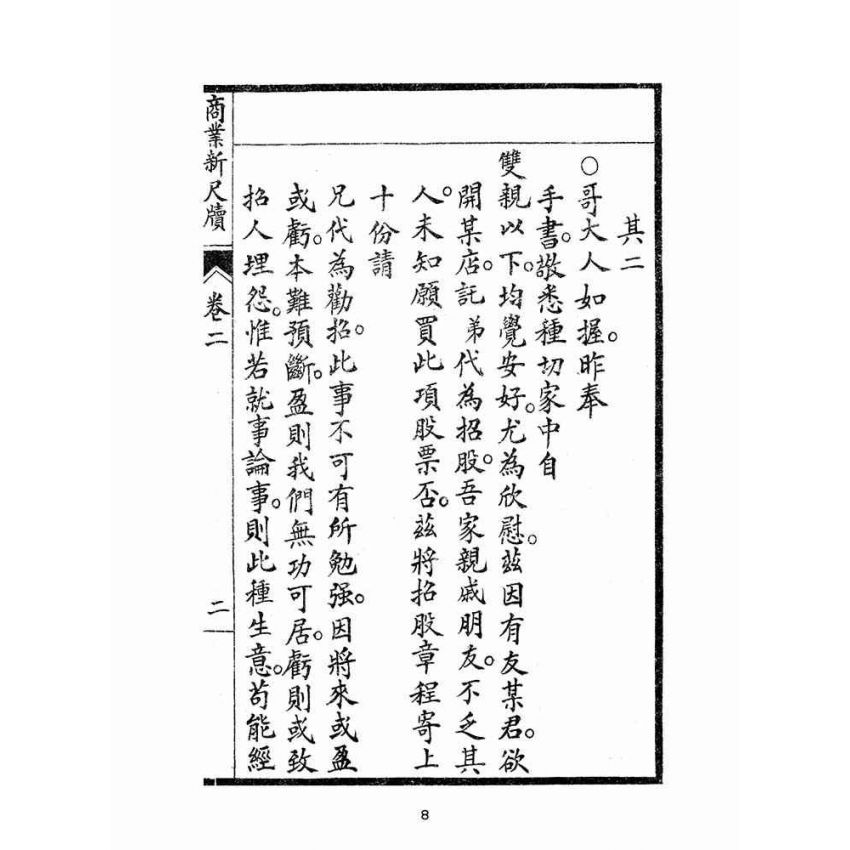 其二
○哥大人如握。昨奉
手書。敬悉種切家中自
雙親以下。均覺安好。尤為欣慰。茲因有友某君。欲
開某店。託弟代為招股。吾家親戚朋友。不乏其
人。未知願買此項股票否。茲將招股章程寄上
十份請
兄代為勸招。此事不可有所勉强。因將來或盈
或虧。本難預斷。盈則我們無功可居。虧則或致
招人埋怨。惟若就事論事。則此種生意。苟能經
商業新尺牘
卷二
二
8